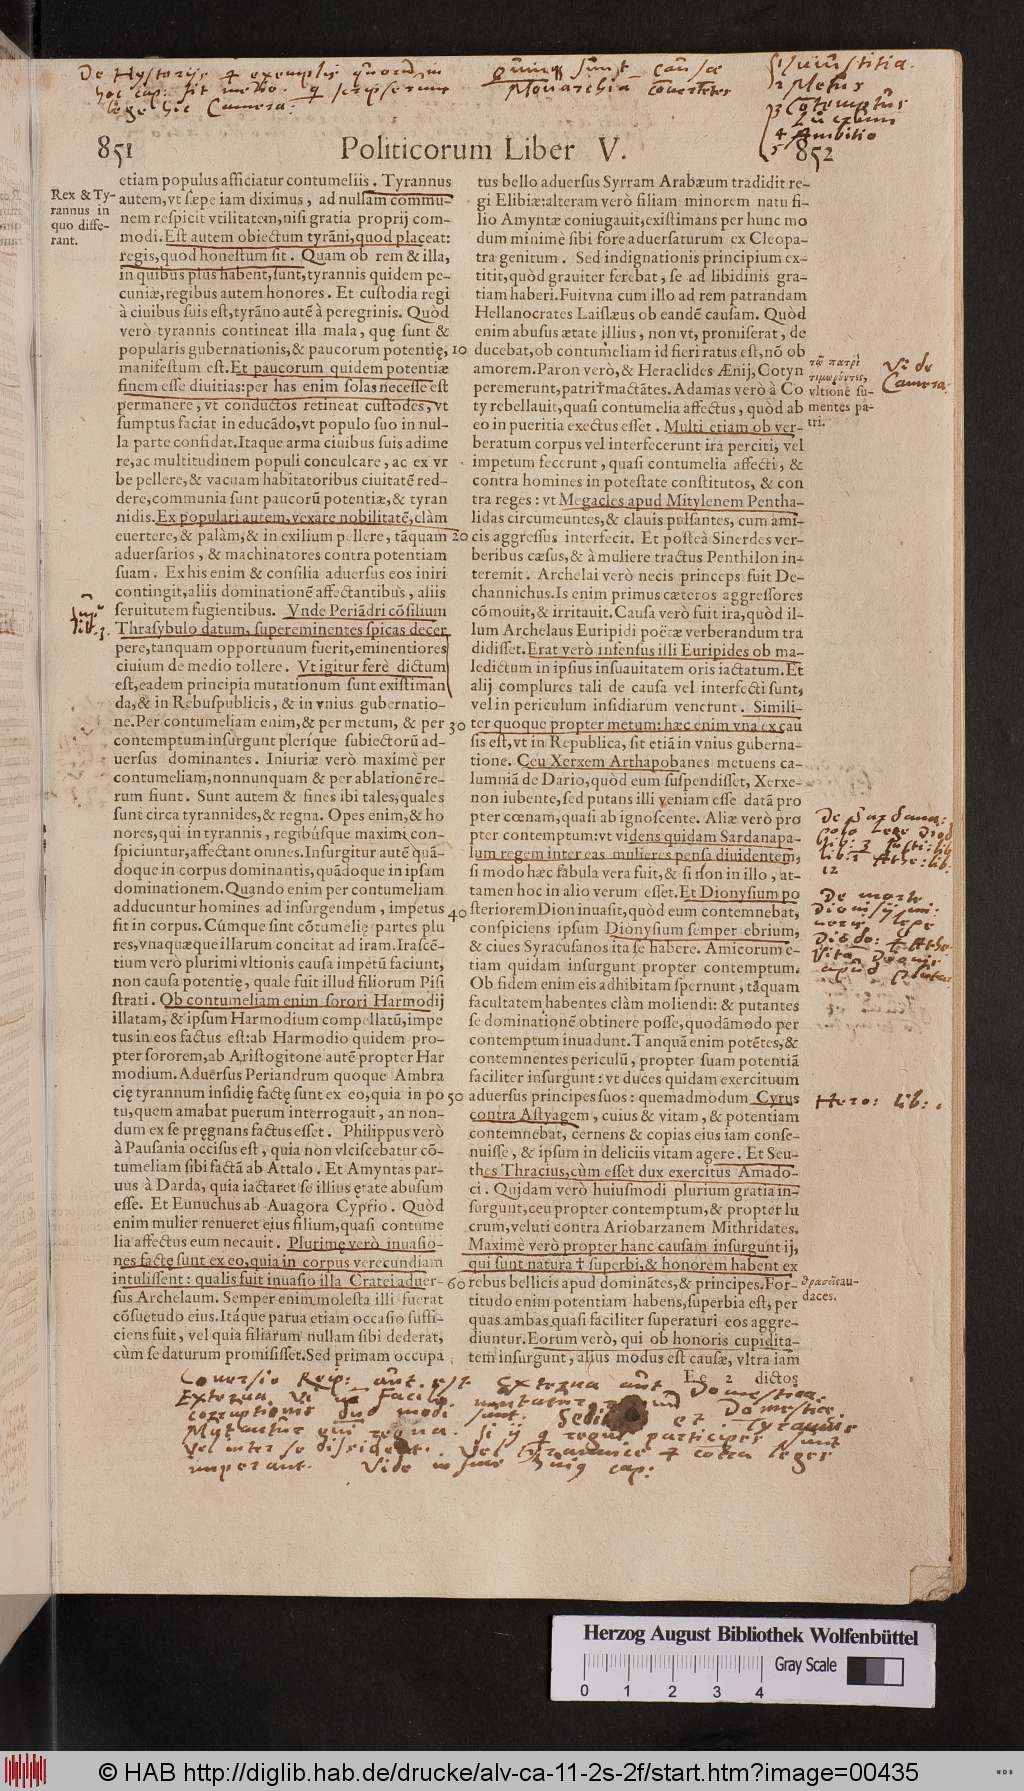 De Hystorijs & exemplis quorum in
hoc cap: fit
lege hic Camera:
Quinque sunt causæ
Monarchia
Iniustitia.
2 Metus
3 Cotemptus
Lucrum
4 Ambitio
5
851
Politicorum Liber V.
852
Rex & Ty-
rannus in
quo diffe-
rant.
etiam populus afficiatur contumeliis. Tyrannus
autem, vt sæpe iam diximus, ad nullam commu-
nem respicit vtilitatem, nisi gratia proprij com-
modi. Est autem obiectum tyrãni, quod placeat:
regis, quod honestum sit. Quam ob rem & illa,
in quibus plus habent, sunt, tyrannis quidem pe-
cuniæ, regibus autem honores. Et custodia regi
à ciuibus suis est, tyrãno autẽ à peregrinis. Quòd
verò tyrannis contineat illa mala, quę sunt &
popularis gubernationis, & paucorum potentię,
manifestum est. Et paucorum quidem potentiæ
finem esse diuitias: per has enim solas necesse est
permanere, vt conductos retineat custodes, vt
sumptus faciat in educãdo, vt populo suo in nul-
la parte confidat. Itaque arma ciuibus suis adime
re, ac multitudinem populi conculcare, ac ex vr
be pellere, & vacuam habitatoribus ciuitatẽ red-
dere, communia sunt paucorũ potentiæ, & tyran
nidis. Ex populari autem, vexare nobilitatẽ, clàm
euertere, & palàm, & in exilium pellere, tãquam
aduersarios, & machinatores contra potentiam
suam. Ex his enim & consilia aduersus eos iniri
contingit, aliis dominationẽ affectantibus, aliis
seruitutem fugientibus. Vnde Periãdri cõsilium
Thrasybulo datum, supereminentes spicas decer
pere, tanquam opportunum fuerit, eminentiores
ciuium de medio tollere. Vt igitur ferè dictum
est, eadem principia mutationum sunt existiman
da, & in Rebuspublicis, & in vnius gubernatio-
ne. Per contumeliam enim, & per metum, & per
contemptum insurgunt plerique subiectorũ ad-
uersus dominantes. Iniuriæ verò maximè per
contumeliam, nonnunquam & per ablationẽ re-
rum fiunt. Sunt autem & fines ibi tales, quales
sunt circa tyrannides, & regna. Opes enim, & ho
nores, qui in tyrannis, regibúsque maximi con-
spiciuntur, affectant omnes. Insurgitur autẽ quã-
doque in corpus dominantis, quãdoque in ipsam
dominationem. Quando enim per contumeliam
adducuntur homines ad insurgendum, impetus
fit in corpus. Cúmque sint cõtumelię partes plu
res, vnaquæque illarum concitat ad iram. Irascẽ-
tium verò plurimi vltionis causa impetũ faciunt,
non causa potentię, quale fuit illud filiorum Pisi
strati. Ob contumeliam enim sorori Harmodij
illatam, & ipsum Harmodium compellatũ, impe
tus in eos factus est: ab Harmodio quidem pro-
pter sororem, ab Aristogitone autẽ propter Har
modium. Aduersus Periandrum quoque Ambra
cię tyrannum insidię factę sunt ex eo, quia in po
tu, quem amabat puerum interrogauit, an non-
dum ex se pręgnans factus esset. Philippus verò
à Pausania occisus est, quia non vlcisceba­tur cõ-
tumeliam sibi factã ab Attalo. Et Amyntas par-
uus à Darda, quia iactaret se illius ętate abusum
esse. Et Eunuchus ab Auagora Cyprio. Quòd
enim mulier renueret eius filium, quasi contume
lia affectus eum necauit. Plurimę verò inuasio-
nes factę sunt ex eo, quia in corpus verecundiam
intulissent: qualis fuit inuasio illa Cratei aduer-
sus Archelaum. Semper enim molesta illi fuerat
cõsuetudo eius. Itáque parua etiam occasio suffi-
ciens fuit, vel quia filiarum nullam sibi dederat,
cùm se daturum promisisset. Sed primam occupa
10
20
30
40
50
60
tus bello aduersus Syrram Arabæum tradidit re-
gi Elibiæ: alteram verò filiam minorem natu fi-
lio Amyntæ coniugauit, existimans per hunc mo
dum minimè sibi fore aduersaturum ex Cleopa-
tra genitum. Sed indignationis principium ex-
titit, quòd grauiter ferebat, se ad libidinis gra-
tiam haberi. Fuit vna cum illo ad rem patrandam
Hellanocrates Laissæus ob eandẽ causam. Quòd
enim abusus ætate illius, non vt, promiserat, de
ducebat, ob contumeliam id fieri ratus est, nõ ob
amorem. Paron verò, & Heraclides Ænij, Cotyn
peremerunt, patri† mactãtes. Adamas verò à Co
ty rebellauit, quasi contumelia affectus, quòd ab
eo in pueritia exectus esset. Multi etiam ob ver-
beratum corpus vel interfecerunt ira perciti, vel
impetum fecerunt, quasi contumelia affecti, &
contra homines in potestate constitutos, & con
tra reges: vt Megacles apud Mitylenem Pentha-
lidas circumeuntes, & clauis pulsantes, cum ami-
cis aggressus interfecit. Et posteà Sinerdes ver-
beribus cæsus, & à muliere tractus Penthilon in-
teremit. Archelai verò necis princeps fuit De-
channichus. Is enim primus cæteros aggressores
cõmouit, & irritauit. Causa verò fuit ira, quòd il-
lum Archelaus Euripidi poëtæ verberandum tra
didisset. Erat verò infensus illi Euripides ob ma-
ledictum in ipsius insuauitatem oris iactatum. Et
alij complures tali de causa vel interfecti sunt,
vel in periculum insidiarum venerunt. Simili-
ter quoque propter metum: hæc enim vna ex cau
sis est, vt in Republica, sit etiã in vnius guberna-
tione. Ceu Xerxem Arthapobanes metuens ca-
lumniã de Dario, quòd eum suspendisset, Xerxe-
non iubente, sed putans illi veniam esse datã pro
pter cœnam, quasi ab ignoscente. Aliæ verò pro
pter contemptum: vt videns quidam Sardanapa-
lum regem inter eas mulieres pensa diuidentem,
si modo hæc fabula vera fuit, & si non in illo, at-
tamen hoc in alio verum esset. Et Dionysium po
steriorem Dion inuasit, quòd eum contemnebat,
conspiciens ipsum Dionysium semper ebrium,
& ciues Syracusanos ita se habere. Amicorum e-
tiam quidam insurgunt propter contemptum.
Ob fidem enim eis adhibitam spernunt, tãquam
facultatem habentes clàm moliendi: & putantes
se dominationẽ obtinere posse, quodãmodo per
contemptum inuadunt. Tanquã enim potẽtes, &
contemnentes periculũ, propter suam potentiã
faciliter insurgunt: vt duces quidam exercituum
aduersus principes suos: quemadmodum Cyrus
contra Astyagem, cuius & vitam, & potentiam
contemnebat, cernens & copias eius iam conse-
nuisse, & ipsum in deliciis vitam agere. Et Seu-
thes Thracius, cùm esset dux exercitus Amado-
ci. Quidam verò huiusmodi plurium gratia in-
surgunt, ceu propter contemptum, & propter lu
crum, veluti contra Ariobarzanem Mithridates.
Maximè verò propter hanc causam insurgunt ij,
qui sunt natura † superbi, & honorem habent ex
rebus bellicis apud dominãtes, & principes. For-
titudo enim potentiam habens, superbia est, per
quas ambas quasi faciliter superaturi eos aggre-
diuntur. Eorum verò, qui ob honoris cupidita-
tem insurgunt, alius modus est causæ, vltra iam
Ee 2 dictos
τῷ πατρὶ
τιμωρῦντες,
vltionẽ su-
mentes pa-
tri.
Vide
Camera:
De Sardana:
polo lege Diod
lib: 2 Iusti: lib
lib: 1 Athe: lib:
12
De morte
Dionisij
Diodo: & Athe
Vita Dionis
apud Plutar
Hero: lib: 1
θρασεῖς au-
daces.
Conuersio Reip: aut est Externa aut Domestica.
Externa
corruptionis duo modi sunt: Seditio et Domesticæ
Tyrannis
Mutantur qui regna. si ij regni participes sunt
Vel inter se dissident. Vel Tyrannice & cotra leges
imperant. Vide in fine huius cap:
Herzog August Bibliothek Wolfenbüttel
Gray Scale
0 1 2 3 4
© HAB http://diglib.hab.de/drucke/alv-ca-11-2s-2f/start.htm?image=00435